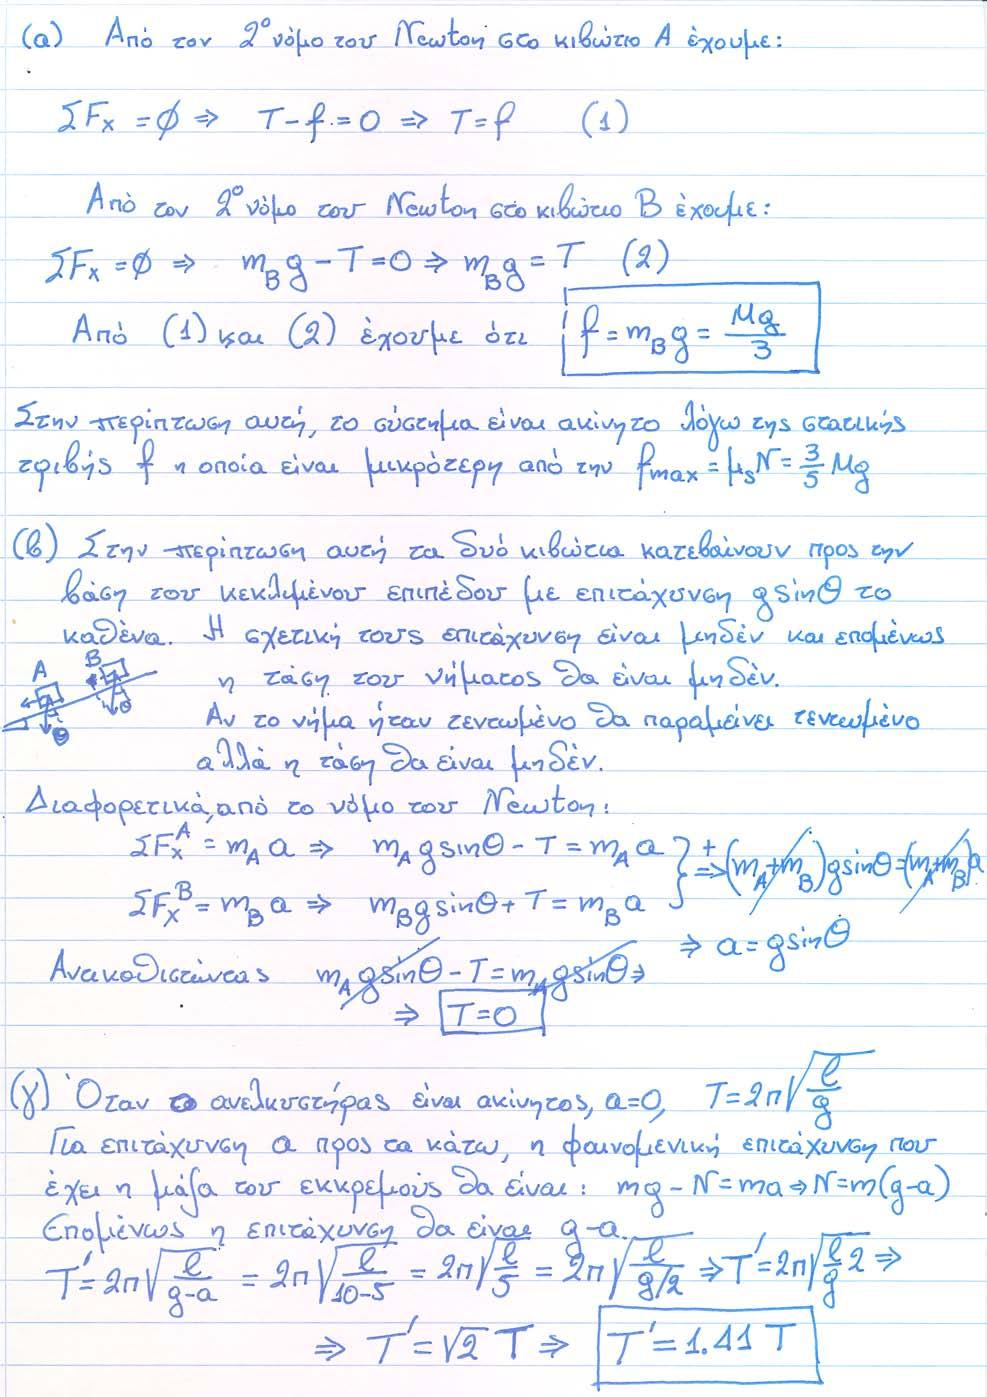 (α) Από τον 2º νόμο του Newton στο κιβώτιο Α έχουμε:
ΣFx = ∅ ⇒ T - f = 0 ⇒ T = f (1)
Από τον 2º νόμο του Newton στο κιβώτιο Β έχουμε:
ΣFx = ∅ ⇒ m_B g - T = 0 ⇒ m_B g = T (2)
Από (1) και (2) έχουμε ότι f = m_B g = Mg/3
Στην περίπτωση αυτή, το σύστημα είναι ακίνητο λόγω της στατικής
τριβής f η οποία είναι μικρότερη από την f_max = μ_s N = 3/5 Mg
(β) Στην περίπτωση αυτή τα δυό κιβώτια κατεβαίνουν προς την
βάση του κεκλιμένου επιπέδου με επιτάχυνση g sinθ το
καθένα. Η σχετική τους επιτάχυνση είναι μηδέν και επομένως
A B
η τάση του νήματος θα είναι μηδέν.
θ θ
Αν το νήμα ήταν τεντωμένο θα παραμείνει τεντωμένο
αλλά η τάση θα είναι μηδέν.
Διαφορετικά, από το νόμο του Newton:
ΣFx^A = m_A a ⇒ m_A g sinθ - T = m_A a } + ⇒ (m_A + m_B) g sinθ = (m_A + m_B) a
ΣFx^B = m_B a ⇒ m_B g sinθ + T = m_B a
⇒ a = g sinθ
Αντικαθιστώντας m_A g sinθ - T = m_A g sinθ ⇒
⇒ T = 0
(γ) Όταν το ανελκυστήρας είναι ακίνητος, a = 0, T = 2π√(l/g)
Για επιτάχυνση a προς τα κάτω, η φαινομενική επιτάχυνση που
έχει η μάζα του εκκρεμούς θα είναι: mg - N = ma ⇒ N = m(g - a)
Επομένως η επιτάχυνση θα είναι g - a.
T' = 2π√(l/(g-a)) = 2π√(l/(10-5)) = 2π√(l/5) = 2π√(l/(g/2)) ⇒ T' = 2π√(l/g 2) ⇒
⇒ T' = √2 T ⇒ T' = 1.41 T